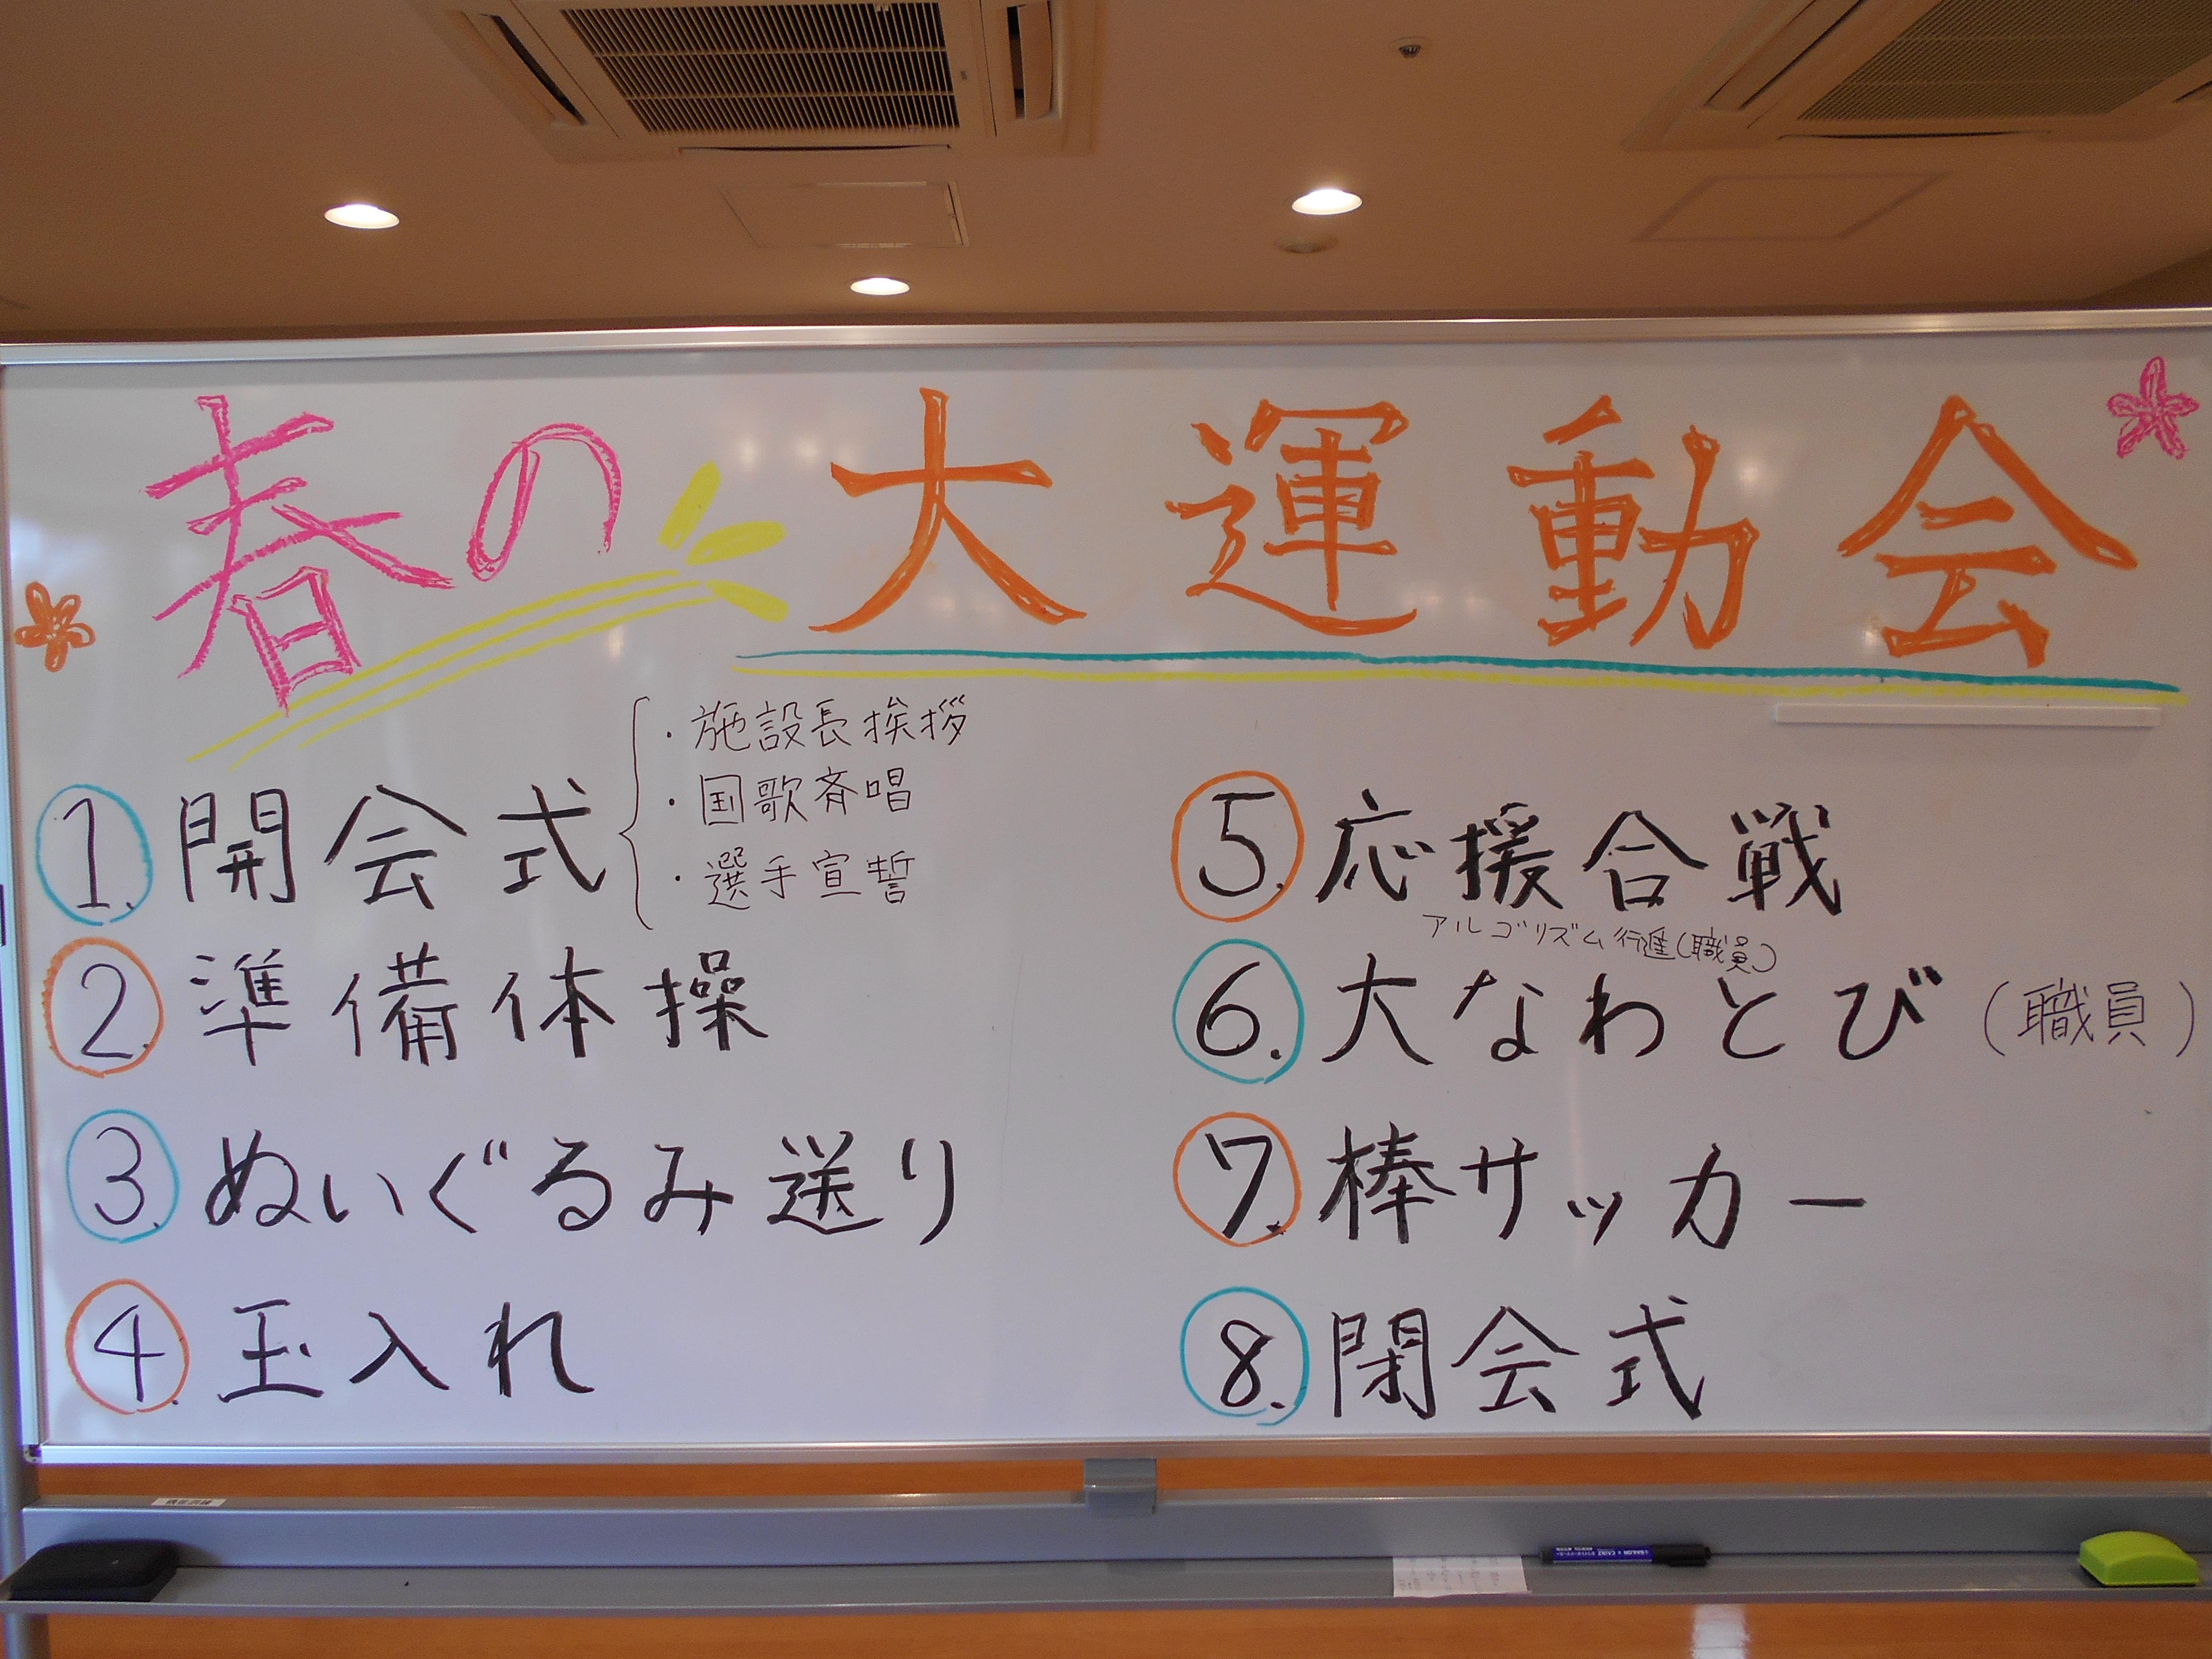 春の大運動会
1. 開会式
・施設長挨拶
・国歌斉唱
・選手宣誓
2. 準備体操
3. ぬいぐるみ送り
4. 玉入れ
5. 応援合戦
アルゴリズム行進(職員)
6. 大なわとび(職員)
7. 棒サッカー
8. 閉会式